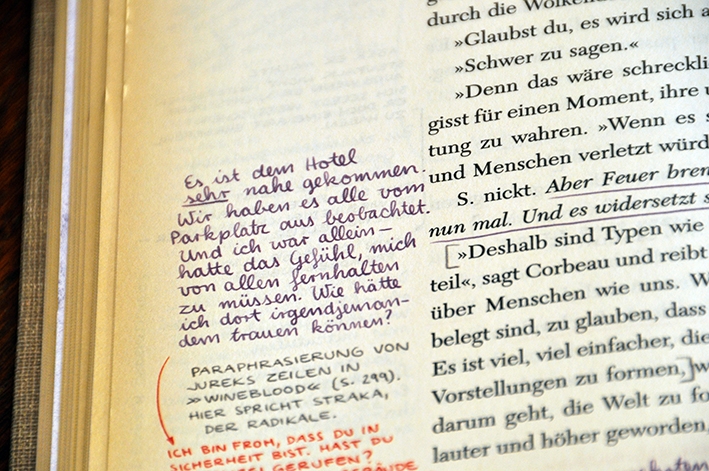 Es ist dem Hotel
sehr nahe gekommen.
Wir haben es alle vom
Parkplatz aus beobachtet.
Und ich war allein –
hatte das Gefühl, mich
von allen fernhalten
zu müssen. Wie hätte
ich dort irgendjeman-
dem trauen können?
PARAPHRASIERUNG VON
JUREKS ZEILEN IN
»WINEBLOOD« (S. 299).
HIER SPRICHT STRAKA,
DER RADIKALE.
ICH BIN FROH, DASS DU IN
SICHERHEIT BIST. HAST DU
GERUFEN?
durch die
»Glaubst du, es wird sich
»Schwer zu sagen.«
»Denn das wäre
gisst für einen Moment, ihre
tung zu wahren. »Wenn es
und Menschen verletzt
S. nickt. Aber Feuer
nun mal. Und es widersetzt
[»Deshalb sind Typen wie
teil«, sagt Corbeau und reibt
über Menschen wie uns.
belegt sind, zu glauben, dass
Es ist viel, viel einfacher, die
Vorstellungen zu formen,]
darum geht, die Welt zu
lauter und höher geworden,